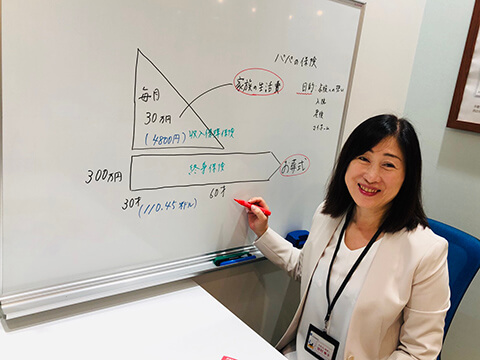 パパの保険
毎月
30万円
(4800円)
収入保障保険
家族の生活費
目的
入院
老後
300万円
終身保険
お葬式
30才
(110.45ドル)
60才